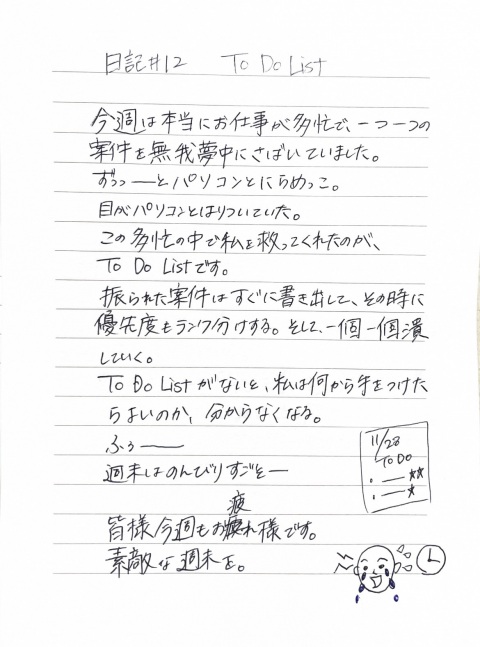 日記#12 To Do List
今週は本当にお仕事が多忙で、一つ一つの
案件を無我夢中にさばいていました。
ずっっーーとパソコンとにらめっこ。
目がパソコンとはりついていた。
この多忙の中で私を救ってくれたのが、
To Do Listです。
振られた案件はすぐに書き出して、その時に
優先度もランク分けする。そして、一個一個潰
していく。
To Do Listがないと、私は何から手をつけた
らよいのか、分からなくなる。
ふぅーー
週末はのんびりすごそー
皆様今週もお疲れ様です。
素敵な週末を。
11/28
TO DO
・ー★★
・ー★